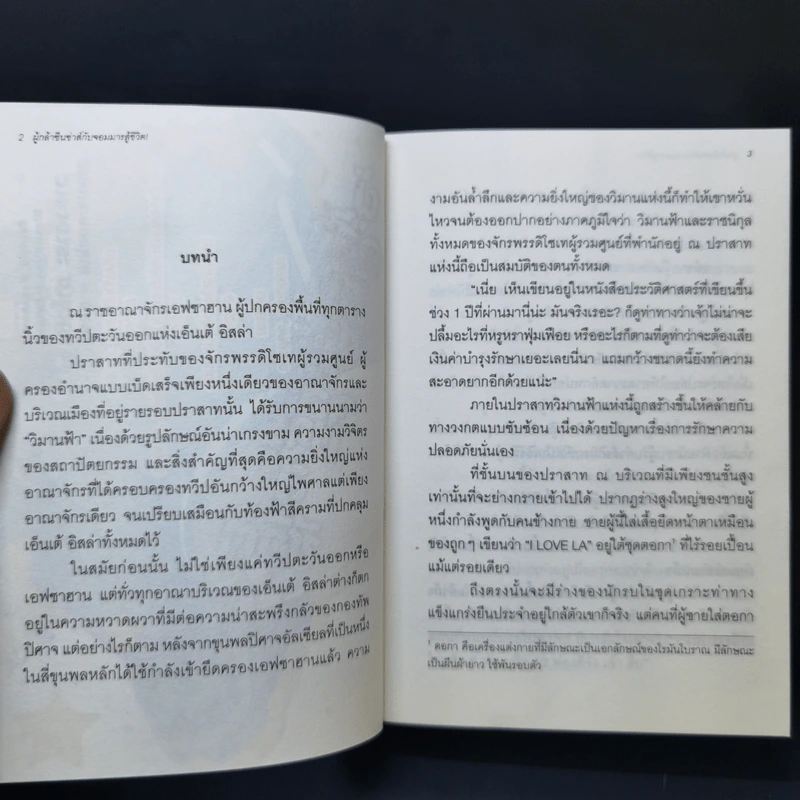 2 ผู้กล้าซึนซ่าส์กับจอมมารสู้ชีวิต!
บทนำ
ณ ราชอาณาจักรเอฟซาฮาน ผู้ปกครองพื้นที่ทุกตาราง
นิ้วของทวีปตะวันออกแห่งเอ็นเต้ อิสล่า
ปราสาทที่ประทับของจักรพรรดิโซเทผู้รวมศูนย์ ผู้
ครองอำนาจแบบเบ็ดเสร็จเพียงหนึ่งเดียวของอาณาจักรและ
บริเวณเมืองที่อยู่รายรอบปราสาทนั้น ได้รับการขนานนามว่า
“วิมานฟ้า” เนื่องด้วยรูปลักษณ์อันน่าเกรงขาม ความงามวิจิตร
ของสถาปัตยกรรม และสิ่งสำคัญที่สุดคือความยิ่งใหญ่แห่ง
อาณาจักรที่ได้ครอบครองทวีปอันกว้างใหญ่ไพศาลแต่เพียง
อาณาจักรเดียว จนเปรียบเสมือนกับท้องฟ้าสีครามที่ปกคลุม
เอ็นเต้ อิสล่าทั้งหมดไว้
ในสมัยก่อนนั้น ไม่ใช่เพียงแค่ทวีปตะวันออกหรือ
เอฟซาฮาน แต่ทั่วทุกอาณาบริเวณของเอ็นเต้ อิสล่าต่างก็ตก
อยู่ในความหวาดผวาที่มีต่อความน่าสะพรึงกลัวของกองทัพ
ปิศาจ แต่อย่างไรก็ตาม หลังจากขุนพลปิศาจอัลเซียลที่เป็นหนึ่ง
ในสี่ขุนพลหลักได้ใช้กำลังเข้ายึดครองเอฟซาฮานแล้ว ความ
3
งามอันล้ำลึกและความยิ่งใหญ่ของวิมานแห่งนี้ก็ทำให้เขาหวั่น
ไหวจนต้องออกปากอย่างภาคภูมิใจว่า วิมานฟ้าและราชนิกุล
ทั้งหมดของจักรพรรดิโซเทผู้รวมศูนย์ที่พำนักอยู่ ณ ปราสาท
แห่งนี้ถือเป็นสมบัติของตนทั้งหมด
“เนี่ย เห็นเขียนอยู่ในหนังสือประวัติศาสตร์ที่เขียนขึ้น
ช่วง 1 ปีที่ผ่านมานี่น่ะ มันจริงเรอะ? ก็ดูท่าทางว่าเจ้าไม่น่าจะ
ปลื้มอะไรที่หรูหราฟุ่มเฟือย หรืออะไรก็ตามที่ดูท่าว่าจะต้องเสีย
เงินค่าบำรุงรักษาเยอะเลยนี่นา แถมกว้างขนาดนี้ยังทำความ
สะอาดยากอีกด้วยแน่ะ”
ภายในปราสาทวิมานฟ้าแห่งนี้ถูกสร้างขึ้นให้คล้ายกับ
ทางวงกตแบบซับซ้อน เนื่องด้วยปัญหาเรื่องการรักษาความ
ปลอดภัยนั่นเอง
ที่ชั้นบนของปราสาท ณ บริเวณที่มีเพียงชนชั้นสูง
เท่านั้นที่จะย่างกรายเข้าไปได้ ปรากฏร่างสูงใหญ่ของชายผู้
หนึ่งกำลังพูดกับคนข้างกาย ชายผู้นี้ใส่เสื้อยืดหน้าตาเหมือน
ของถูกๆ เขียนว่า “I LOVE LA” อยู่ใต้ชุดตอกา¹ ที่ไร้รอยเปื้อน
แม้แต่รอยเดียว
ถึงตรงนั้นจะมีร่างของนักรบในชุดเกราะท่าทาง
แข็งแกร่งยืนประจำอยู่ใกล้ตัวเขาก็จริง แต่คนที่ผู้ชายใส่ตอกา
¹ ตอกา คือเครื่องแต่งกายที่มีลักษณะเป็นเอกลักษณ์ของโรมันโบราณ มีลักษณะ
เป็นผืนผ้ายาว ใช้พันรอบตัว